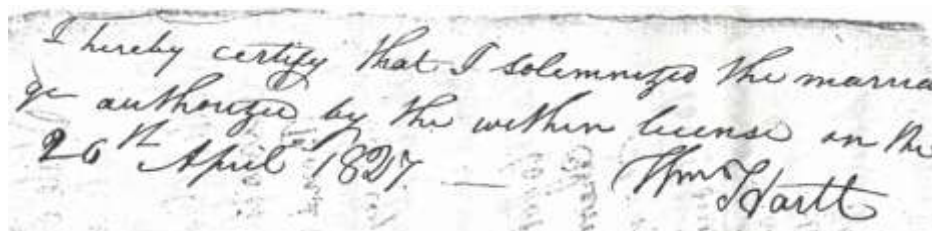 I hereby certify that I solemnized the marria
ge authorized by the within license on the
26th April 1827 — Wm Hartt